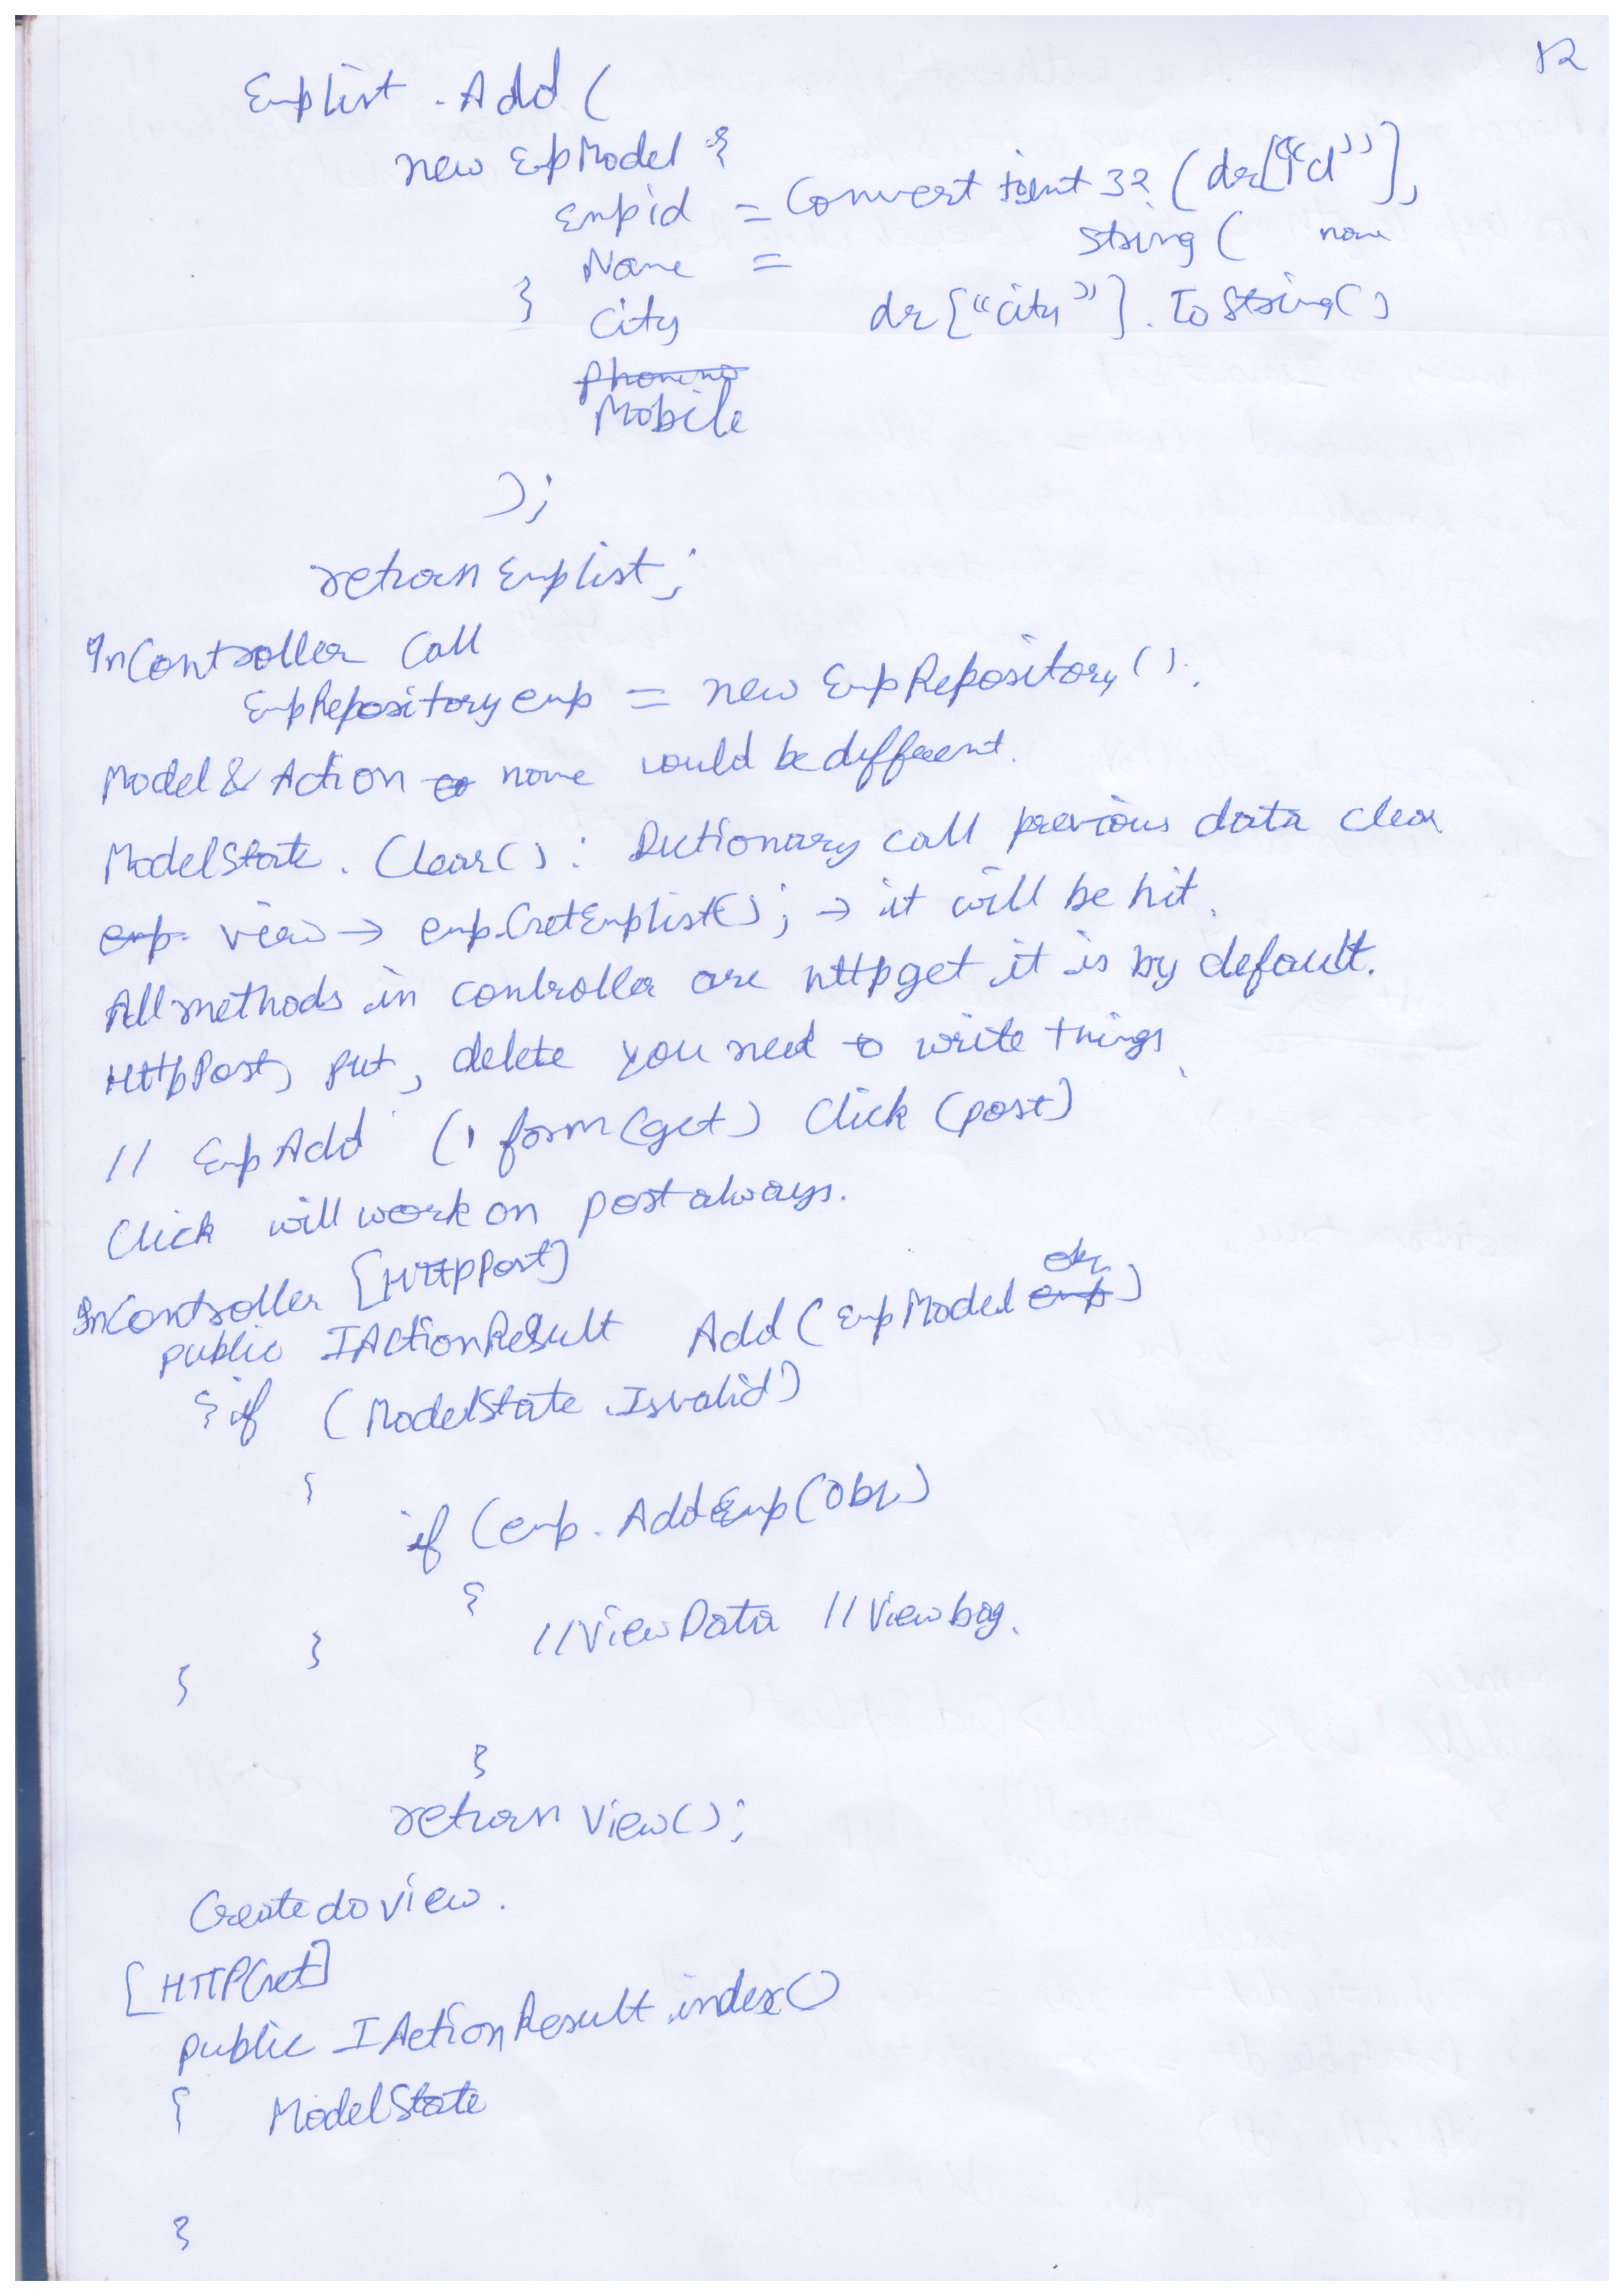 12
Emplist . Add (
new EmpModel {
Empid = Convert toint 32 (dr["id"],
Name = string ( name
} City dr["city"]. ToString()
Phoneno
Mobile
);
return Emplist;
InController Call
EmpRepository emp = new EmpRepository().
Model & Action name would be different.
ModelState. Clear() : Dictionary call previous data clear
emp. view → emp.GetEmplist(); → it will be hit.
All methods in controller are httpget it is by default.
HttpPost, put, delete you need to write things.
// EmpAdd (1 form (get) Click (post)
Click will work on post always.
InController [HttpPost]
public IActionResult Add ( EmpModel emp obj )
{ if (ModelState .Isvalid)
{
if (emp. AddEmp(obj)
{
//ViewData //Viewbag.
}
}
}
return View();
Create do view.
[HTTPGet]
public IActionResult index()
{ ModelState
}